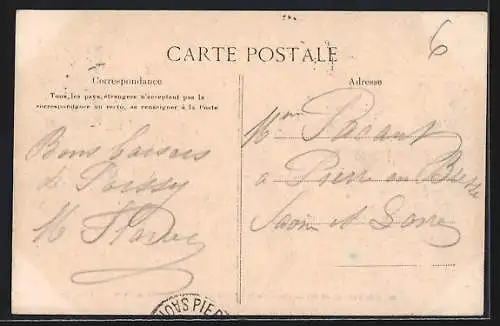 6
CARTE POSTALE
Correspondance
Tous les pays étrangers n'acceptent pas la
correspondance au recto, se renseigner à la Poste
Bons baisers
de Poissy
Adresse
a Pierre en Bresse
Saone et Loire
PIER
SAO